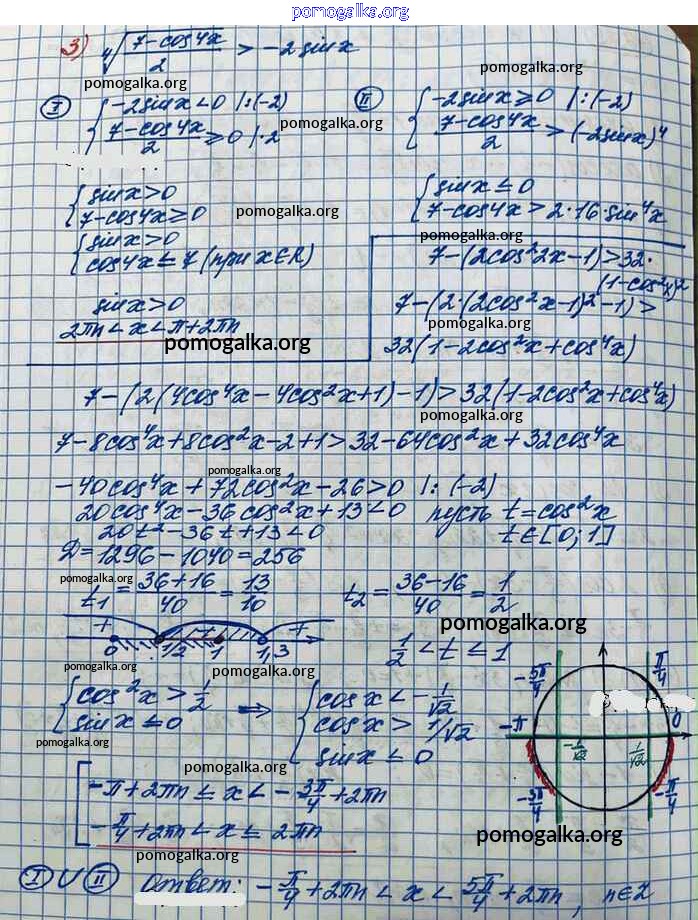 pomogalka.org
3) ⁴√((7-cos4x)/2) > -2sinx
pomogalka.org
pomogalka.org
I { -2sinx<0 |:(-2)
(7-cos4x)/2 ≥ 0 |·2
pomogalka.org
II { -2sinx≥0 |:(-2)
(7-cos4x)/2 > (-2sinx)⁴
pomogalka.org
{ sinx>0
7-cos4x≥0
pomogalka.org
{ sinx≤0
7-cos4x>2·16·sin⁴x
{ sinx>0
cos4x≤7 (при x∈R)
sinx>0
2πn<x<π+2πn
pomogalka.org
7-(2cos²2x-1)>32·
(1-cos²x)²
7-(2·(2cos²x-1)²-1)>
pomogalka.org
32(1-2cos²x+cos⁴x)
7-(2(4cos⁴x-4cos²x+1)-1)>32(1-2cos²x+cos⁴x)
pomogalka.org
7-8cos⁴x+8cos²x-2+1>32-64cos²x+32cos⁴x
pomogalka.org
-40cos⁴x+72cos²x-26>0 |:(-2)
20cos⁴x-36cos²x+13<0 пусть t=cos²x
20t²-36t+13<0 t∈[0;1]
Д=1296-1040=256
pomogalka.org
t₁=(36+16)/40=13/10 t₂=(36-16)/40=1/2
pomogalka.org
+ - +
0 1/2 1 1,3
1/2<t≤1
pomogalka.org
pomogalka.org
{ cos²x>1/2
sinx≤0
⇒ { cosx<-1/√2
cosx>1/√2
sinx≤0
pomogalka.org
pomogalka.org
-5π/4 π/4
-π 0
-1/√2 1/√2
-3π/4 -π/4
[ -π+2πn≤x<-3π/4+2πn
-π/4+2πn<x≤2πn
pomogalka.org
pomogalka.org
I ∪ II Ответ: -π/4+2πn<x<5π/4+2πn, n∈Z
pomogalka.org